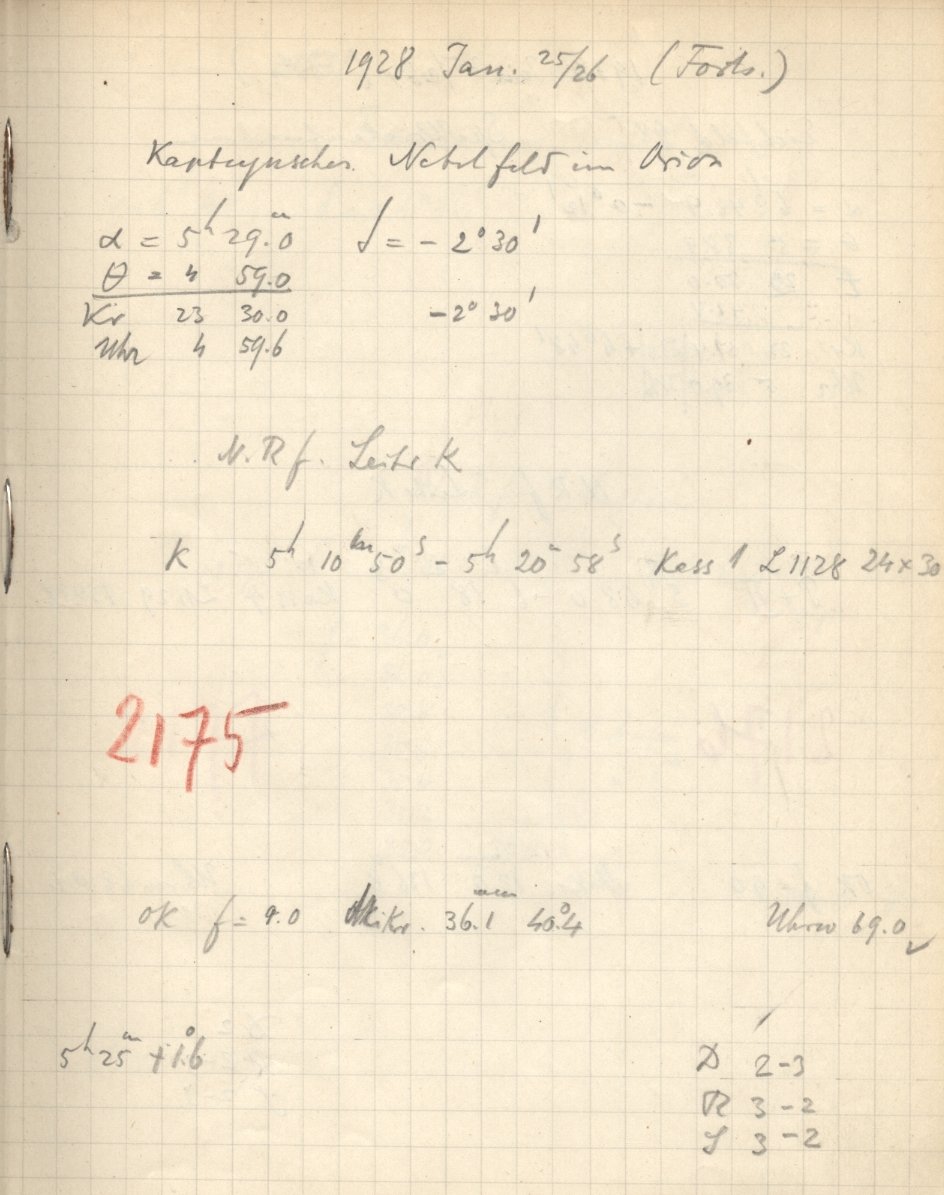 1928 Jan. 25/26 (Forts.)
Kapteynsches Nebelfeld im Orion
α = 5h 29m.0 δ = - 2° 30'
θ = 4 59.0
Kr 23 30.0 - 2° 30'
Uhr 4 59.6
N. R f. Leitr K
K 5h 10m 50s - 5h 20m 58s Kass 1 L 1128 24 × 30
2175
OK f = 9.0 Kr. 36.1mm 40°.4 Uhrw 69.0 ✓
5h 25m + 1°.6
D 2-3
R 3-2
S 3-2